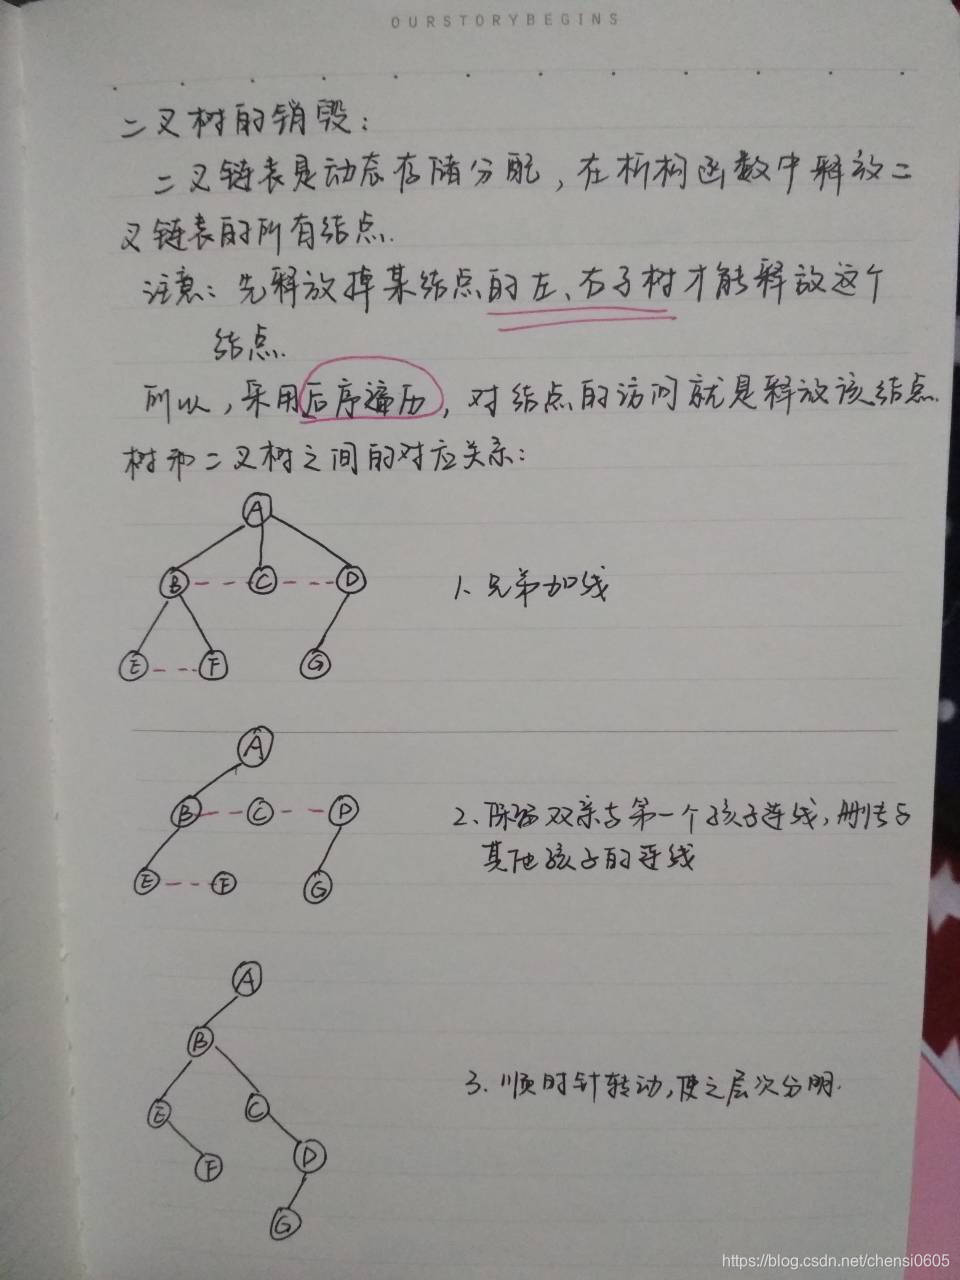 OURSTORYBEGINS
二叉树的销毁:
二叉链表是动态存储分配,在析构函数中释放二
叉链表的所有结点.
注意:先释放掉某结点的左、右子树才能释放这个
结点.
所以,采用后序遍历,对结点的访问就是释放该结点.
树和二叉树之间的对应关系:
A
B C D
1、兄弟加线
E F G
A
B C D
2、保留双亲与第一个孩子连线,删去与
其他孩子的连线
E F G
A
B
3. 顺时针转动,使之层次分明.
E C
F D
G
https://blog.csdn.net/chensi0605